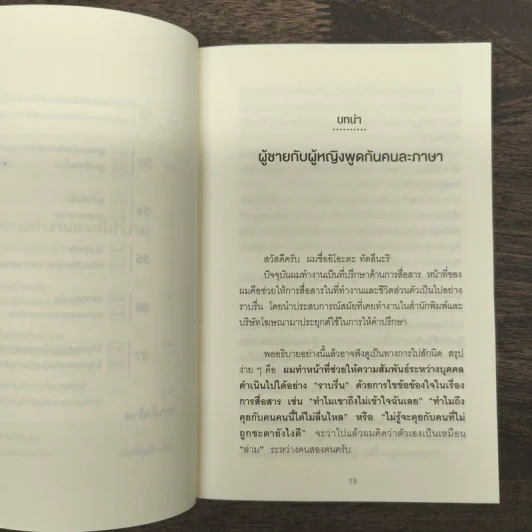 บทนำ
ผู้ชายกับผู้หญิงพูดกันคนละภาษา
สวัสดีครับ ผมชื่ออิโอะตะ ทัตสึนะริ
ปัจจุบันผมทำงานเป็นที่ปรึกษาด้านการสื่อสาร หน้าที่ของ
ผมคือช่วยให้การสื่อสารในที่ทำงานและชีวิตส่วนตัวเป็นไปอย่าง
ราบรื่น โดยนำประสบการณ์สมัยที่เคยทำงานในสำนักพิมพ์และ
บริษัทโฆษณามาประยุกต์ใช้ในการให้คำปรึกษา
พออธิบายอย่างนี้แล้วอาจฟังดูเป็นทางการไปสักนิด สรุป
ง่าย ๆ คือ ผมทำหน้าที่ช่วยให้ความสัมพันธ์ระหว่างบุคคล
ดำเนินไปได้อย่าง "ราบรื่น" ด้วยการไขข้อข้องใจในเรื่อง
การสื่อสาร เช่น "ทำไมเขาถึงไม่เข้าใจฉันเลย" "ทำไมถึง
คุยกับคนคนนี้ได้ไม่ลื่นไหล" หรือ "ไม่รู้จะคุยกับคนที่ไม่
ถูกชะตายังไงดี" จะว่าไปแล้วผมคิดว่าตัวเองเป็นเหมือน
"ล่าม" ระหว่างคนสองคนครับ
13
33
34
35
36
37